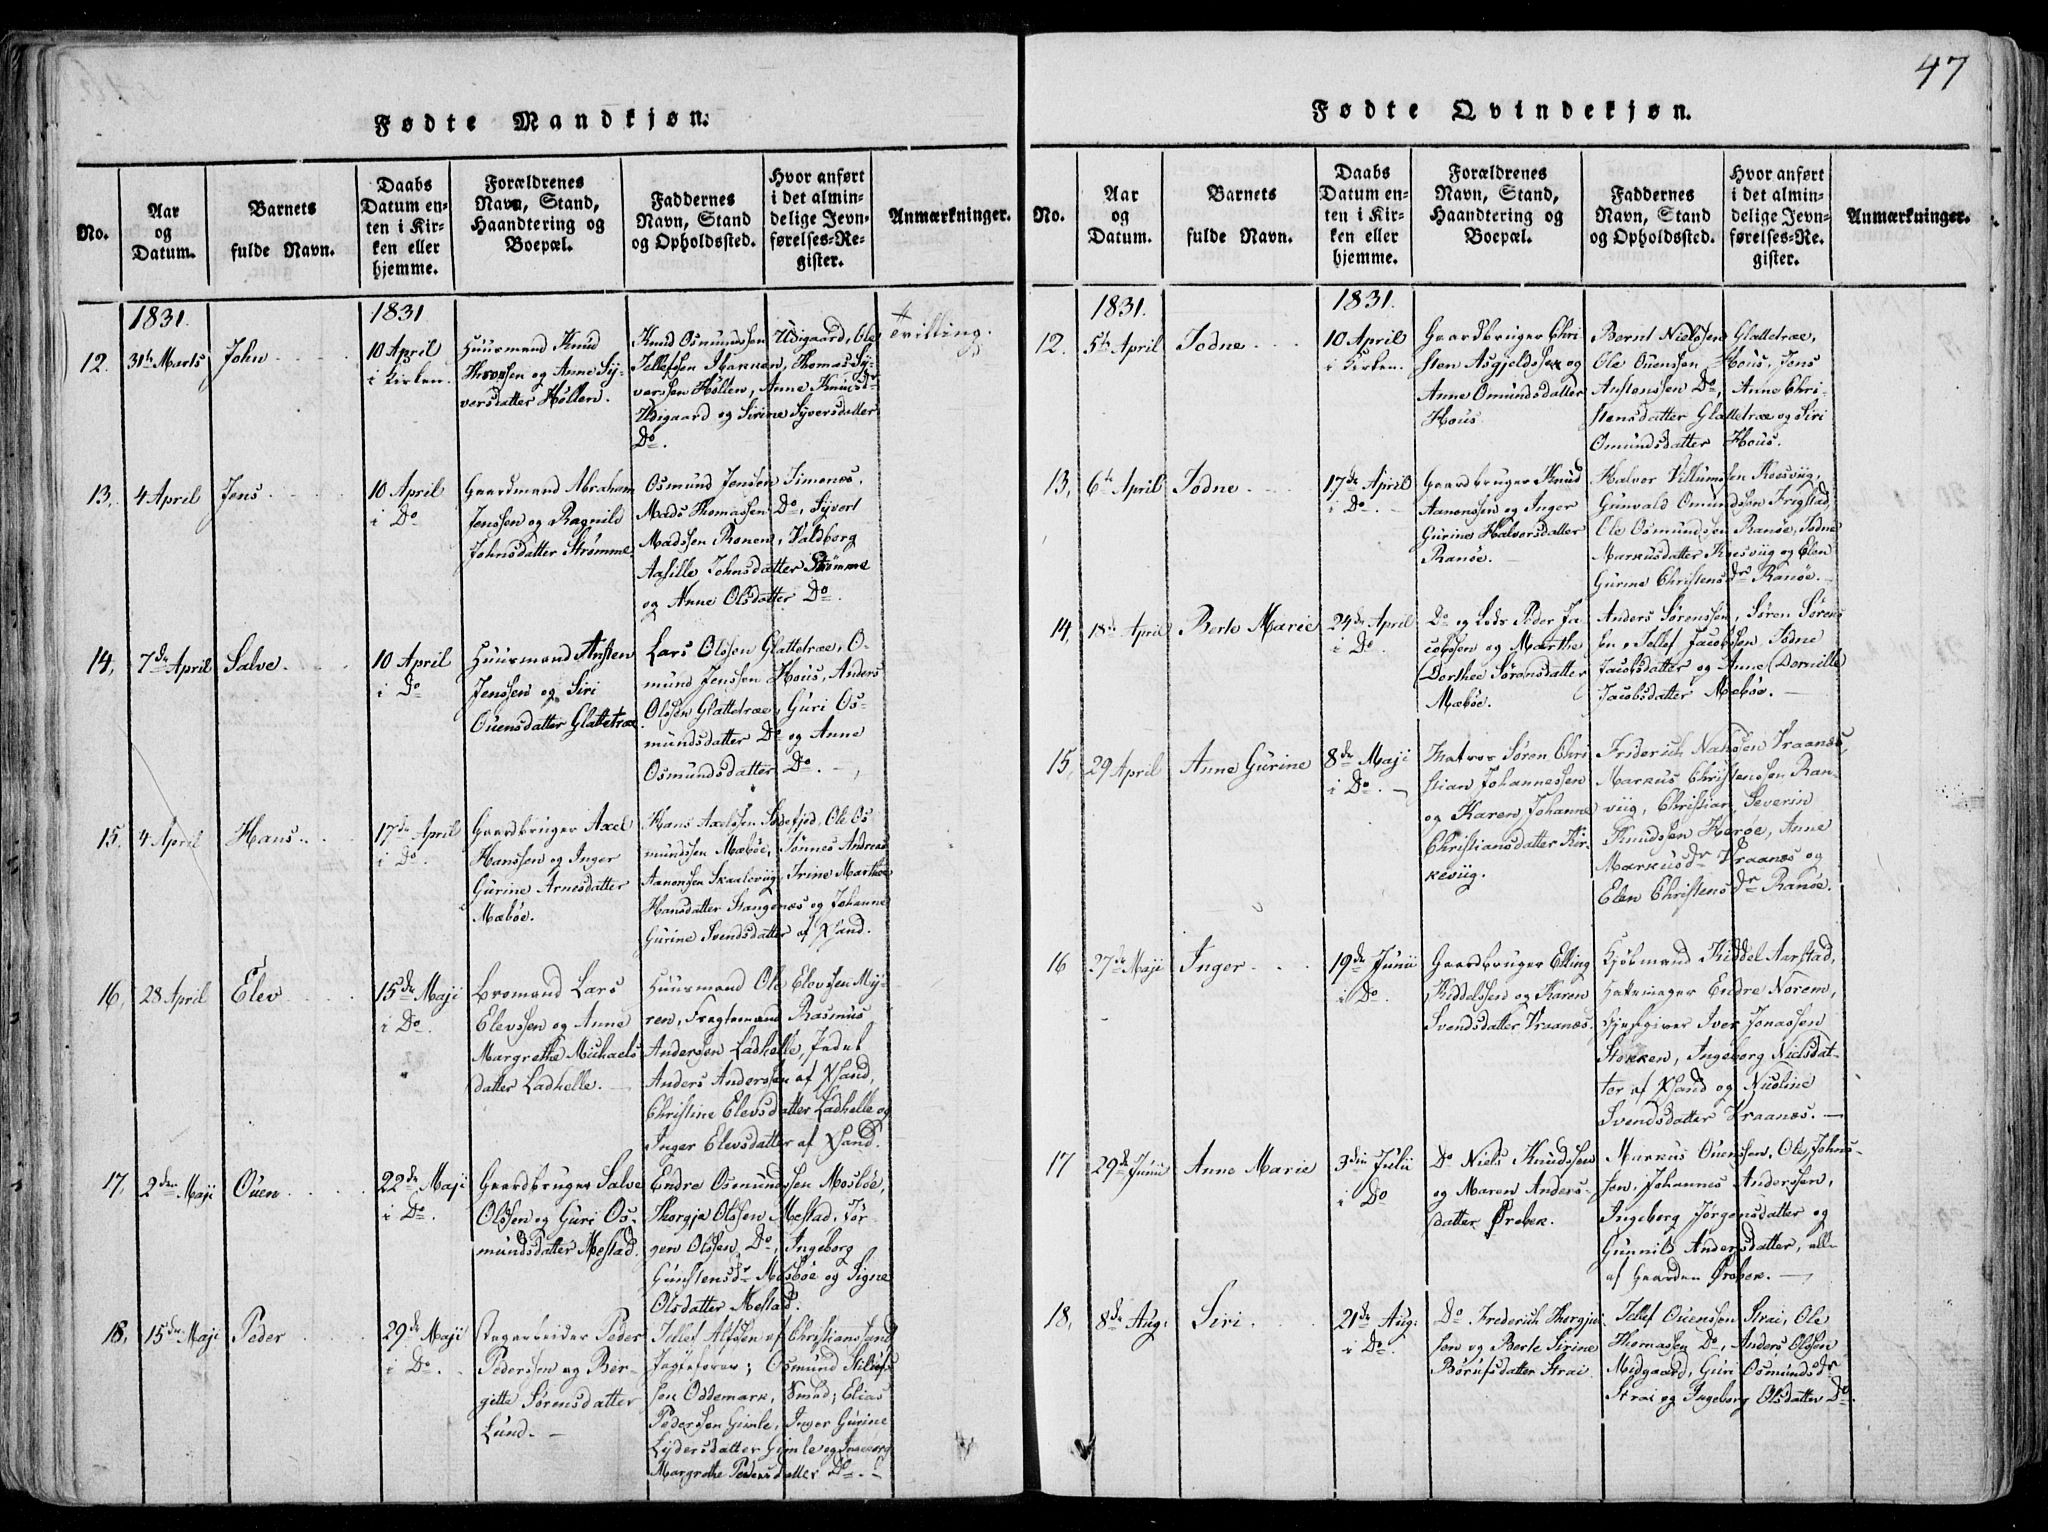 47
Fødte Mandkjøn.
No.
Aar
og
Datum.
Barnets
fulde Navn.
Daabs
Datum en-
ten i Kir-
ken eller
hjemme.
Forældrenes
Navn, Stand,
Haandtering og
Boepæl.
Faddernes
Navn, Stand
og Opholdssted.
Hvor anført
i det almin-
delige Jevn-
førelses-Re-
gister.
Anmærkninger.
1831.
1831
12.
31te Marts
John
10 April
i Kirken.
Huusmand Knud
og Anne Sy-
versdatter Hølten.
Knud Osmundssen Udigaard, Ole
Tellefsen Thomas Sy-
verssen Hølten, Anne Knudsdr
Udigaard og Sirine Syversdatter
Do.
Tvilling.
13,
4 April
Jens
10 April
i Do
Gaardmand Abraham
Jenssen og Ragnild
Johnsdatter Strømme.
Osmund Jensen Timenes,
Mads Thomassen Do, Syvert
Madssen Ronen, Valdborg
Aasille Johnsdatter Strømme
og Anne Olsdatter Do.
14,
7de April
Salve
10 April
i Do
Huusmand Ansten
Jenssen og Siri
Ouensdatter Glattetræ
Lars Olssen Glattetræ, O-
mund Jenssen Hous, Anders
Olssen Glattetræ, Guri Os-
mundsdatter Do og Anne
Osmundsdatter Do.
15,
4 April
Hans
17de April
i Do.
Gaardbruger Axel
Hanssen og Inger
Gurine Arnesdatter
Mæbøe.
Hans Axelssen Ole Os-
mundssen Mæbøe, Tønnes Andreas
Aanonsen Skaalevug, Trine Marthe
Hansdatter Stangenæs og Johanne
Gurine Svendsdatter af Xsand.
16,
28 April
Elev
15de Maji
i Do.
Lars
Elevssen og Anne
Margrethe Michaels
datter Ladhelle.
Huusmand Ole Elovssen My-
ren, Fragtemand Rasmus
Anderssen Ladhelle,
Anders Anderssen af Xsand,
Christine Elevsdatter Ladhelle og
Inger Elevsdatter af Xsand.
17,
2den Maji
Ouen
22de Maji
i Do.
Gaardbruger Salve
Olssen og Guri Os-
mundsdatter Mestad.
Endre Osmundssen Mosbøe,
Thorgje Olssen Mestad, Jør-
gen Olssen Do, Ingeborg
Gunstensdr Mosbøe og Signe
Olsdatter Mestad.
18,
15de Maji
Peder
29de Maji
i Do.
Peder
Pederssen og Ber-
gitte Sørensdatter
Lund.
Tellef Alfsen af Christianssand
Osmund
sen Oddemark, Smed; Elias
Pederssen Gimle, Inger Gurine
Lydersdatter Gimle og Ingeborg
Margrethe Pedersdatter Do.
Fødte Qvindekjøn.
No.
Aar
og
Datum.
Barnets
fulde Navn.
Daabs
Datum en-
ten i Kir-
ken eller
hjemme.
Forældrenes
Navn, Stand,
Haandtering og
Boepæl.
Faddernes
Navn, Stand
og Opholdssted.
Hvor anført
i det almin-
delige Jevn-
førelses-Re-
gister.
Anmærkninger.
1831.
1831.
12.
5te April
Todne
10 April
i Kirken.
Gaardbruger Chri
sten Asgjeldssen og
Anne Omundsdatter
Hous
Bernt Nielssen Glattetræ,
Ole Ouenssen Hous, Jens
Anstenssen Do, Anne Chri-
stensdatter Glattetræ og Siri
Omundsdatter Hous.
13,
6te April
Todne
17de April
i Do.
Gaardbruger Knud
Aanonssen og Inger
Gurine Halvorsdatter
Ranøe.
Halvor Villumsen
Gunvald Omundssen Frigstad,
Ole Osmundssen Ranøe, Todne
Markusdatter og Elen
Gurine Christensdr Ranøe.
14,
18de April
Berte Marie
24de April
i Do.
Do og Lods Peder Ja-
cobssen og Marthe
Dorthee Sørensdatter
Mæbøe.
Anders Sørenssen, Søren Sørens
sen, Tellef Jacobssen Todne
Jacobsdatter og Anne Dornille
Jacobsdatter Mæbøe.
15,
29 April
Anne Gurine
8de Maji
i Do.
Matros Søren Chri
stian Johannessen
og Karen Johanne
Christiansdatter Kir-
kevug.
Friderich Vraanæs,
Markus Christenssen Ran-
vug, Christian Severin
Knudssen Herøe, Anne
Markusdr Vraanæs og
Elen Christensdr Ranøe.
16
27de Maji
Inger
19de Junii
i Do.
Gaardbruger Elling
Kiddelssen og Karen
Svendsdatter Vraanæs.
Kjøbmand Kiddel Aarstad,
Hattemager Endre Norem,
Iver Jonassen
Stokken, Ingeborg Nielsdat-
ter af Xsand og Nicoline
Svendsdatter Vraanæs.
17
29de Junii
Anne Marie
3die Julii
i Do
Do Niels Knudssen
og Maren Anders-
datter Ørebek.
Markus Ouenssen, Ole Johns-
sen, Johannes Anderssen,
Ingeborg Jørgensdatter og
Gunnild Andersdatter, alle
af Gaarden Ørebek.
18,
8de Aug:
Siri
21de Aug:
i Do.
Do Frederich Thorgje
sen og Berte Sirine
Børufsdatter Strai
Tellef Ouenssen Strai, Ole
Thomasen Do, Anders Olssen
Midgaard, Guri Osmundsdr
Strai og Ingeborg Olsdatter Do.